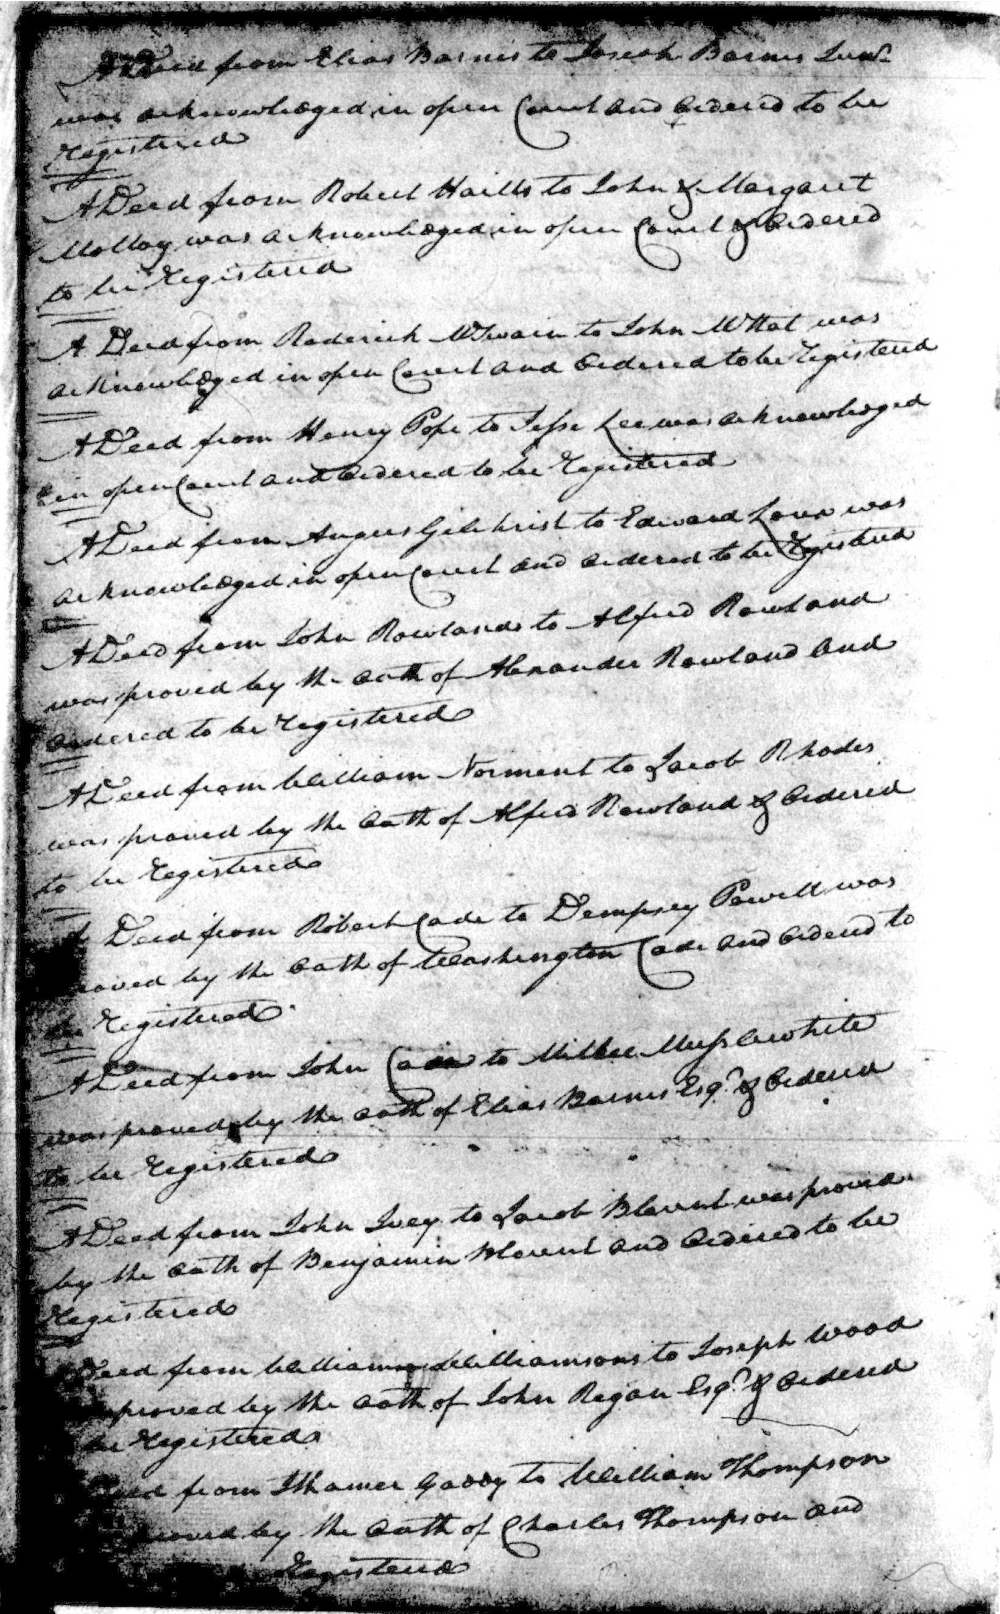 A Deed from Elias Barnes to Joseph Barnes Junr
was acknowledged in open Court and ordered to be
Registered
A Deed from Robert Hails to John & Margaret
Molloy was acknowledged in open Court & Ordered
to be Registered
A Deed from Roderick McSwain to John McNat was
acknowledged in open Court and Ordered to be Registered
A Deed from Henry Pope to Jesse Lee was acknowledged
in open Court and Ordered to be Registered
A Deed from Angus Gilchrist to Edward Love was
acknowledged in open Court and ordered to be Registered
A Deed from John Rowland to Alfred Rowland
was proved by the Oath of Alexander Rowland And
Ordered to be Registered
A Deed from William Norment to Jacob Rhodes
was proved by the Oath of Alfred Rowland & Ordered
to be Registered
A Deed from Robert Cade to Dempsey Powell was
proved by the Oath of Washington Cade and Ordered to
be Registered
A Deed from John Cade to Milbee Musslewhite
was proved by the Oath of Elias Barnes Esqr & Ordered
to be Registered
A Deed from John Ivey to Jacob Blount was proved
by the Oath of Benjamin Blount and Ordered to be
Registered
Deed from William Williamsons to Joseph Wood
proved by the Oath of John Regan Esqr & Ordered
be Registered
Deed from Ithamer Gaddy to William Thompson
proved by the Oath of Charles Thompson and
Registered